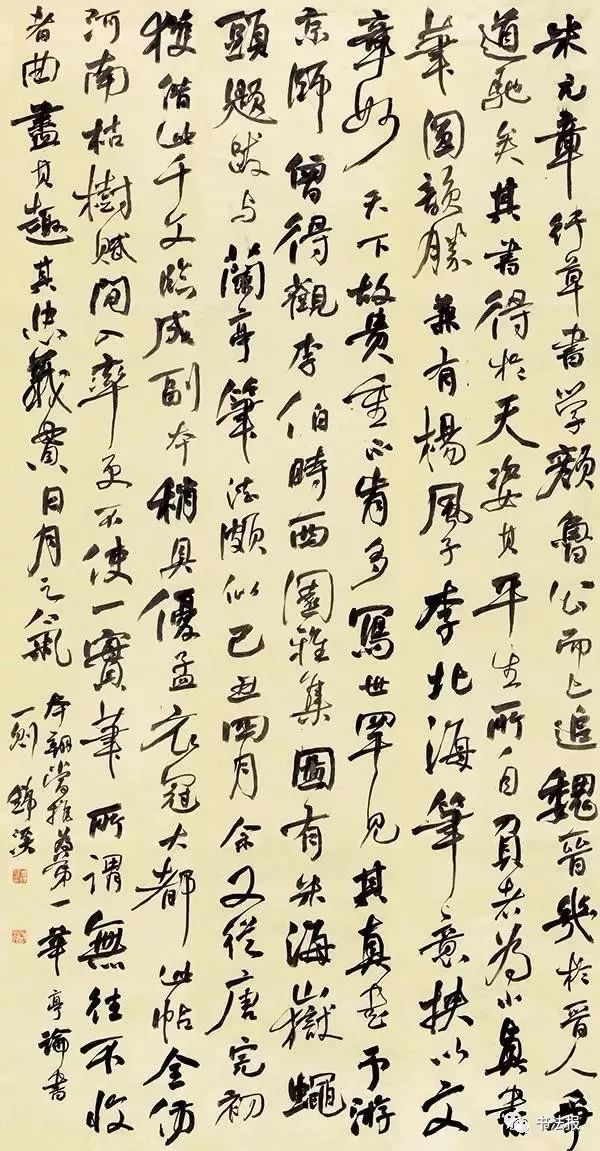 米元章行草書学顏魯公而上追魏晉幾於晉人爭
道馳矣其書得於天姿其平生所自負者為小真書
筆圓韻勝兼有楊風子李北海筆意扶以文
章妙天下故貴重不肯多寫世罕見其真書予游
京師曾得觀李伯時西園雅集圖有米海嶽蠅
頭題跋与蘭亭筆法頗似己丑四月余又從唐完初
獲借此千文臨成副本稍具優孟衣冠大都此帖全仿
河南枯樹賦間入率更不使一實筆所謂無往不收
者曲盡其趣其忠義貫日月之氣
本朝當推為第一華亭論書
一則錦溪
书法报